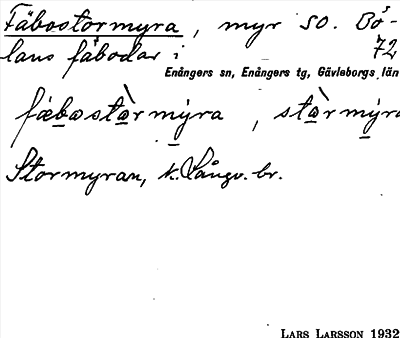 Fäbostormyra, myr SO. Bö-
lans fäbodar i 72
Enångers sn, Enångers tg, Gävleborgs län
fæbostàr mýra, stàr mýra
Stormyran, k. Långv. br.
LARS LARSSON 1932